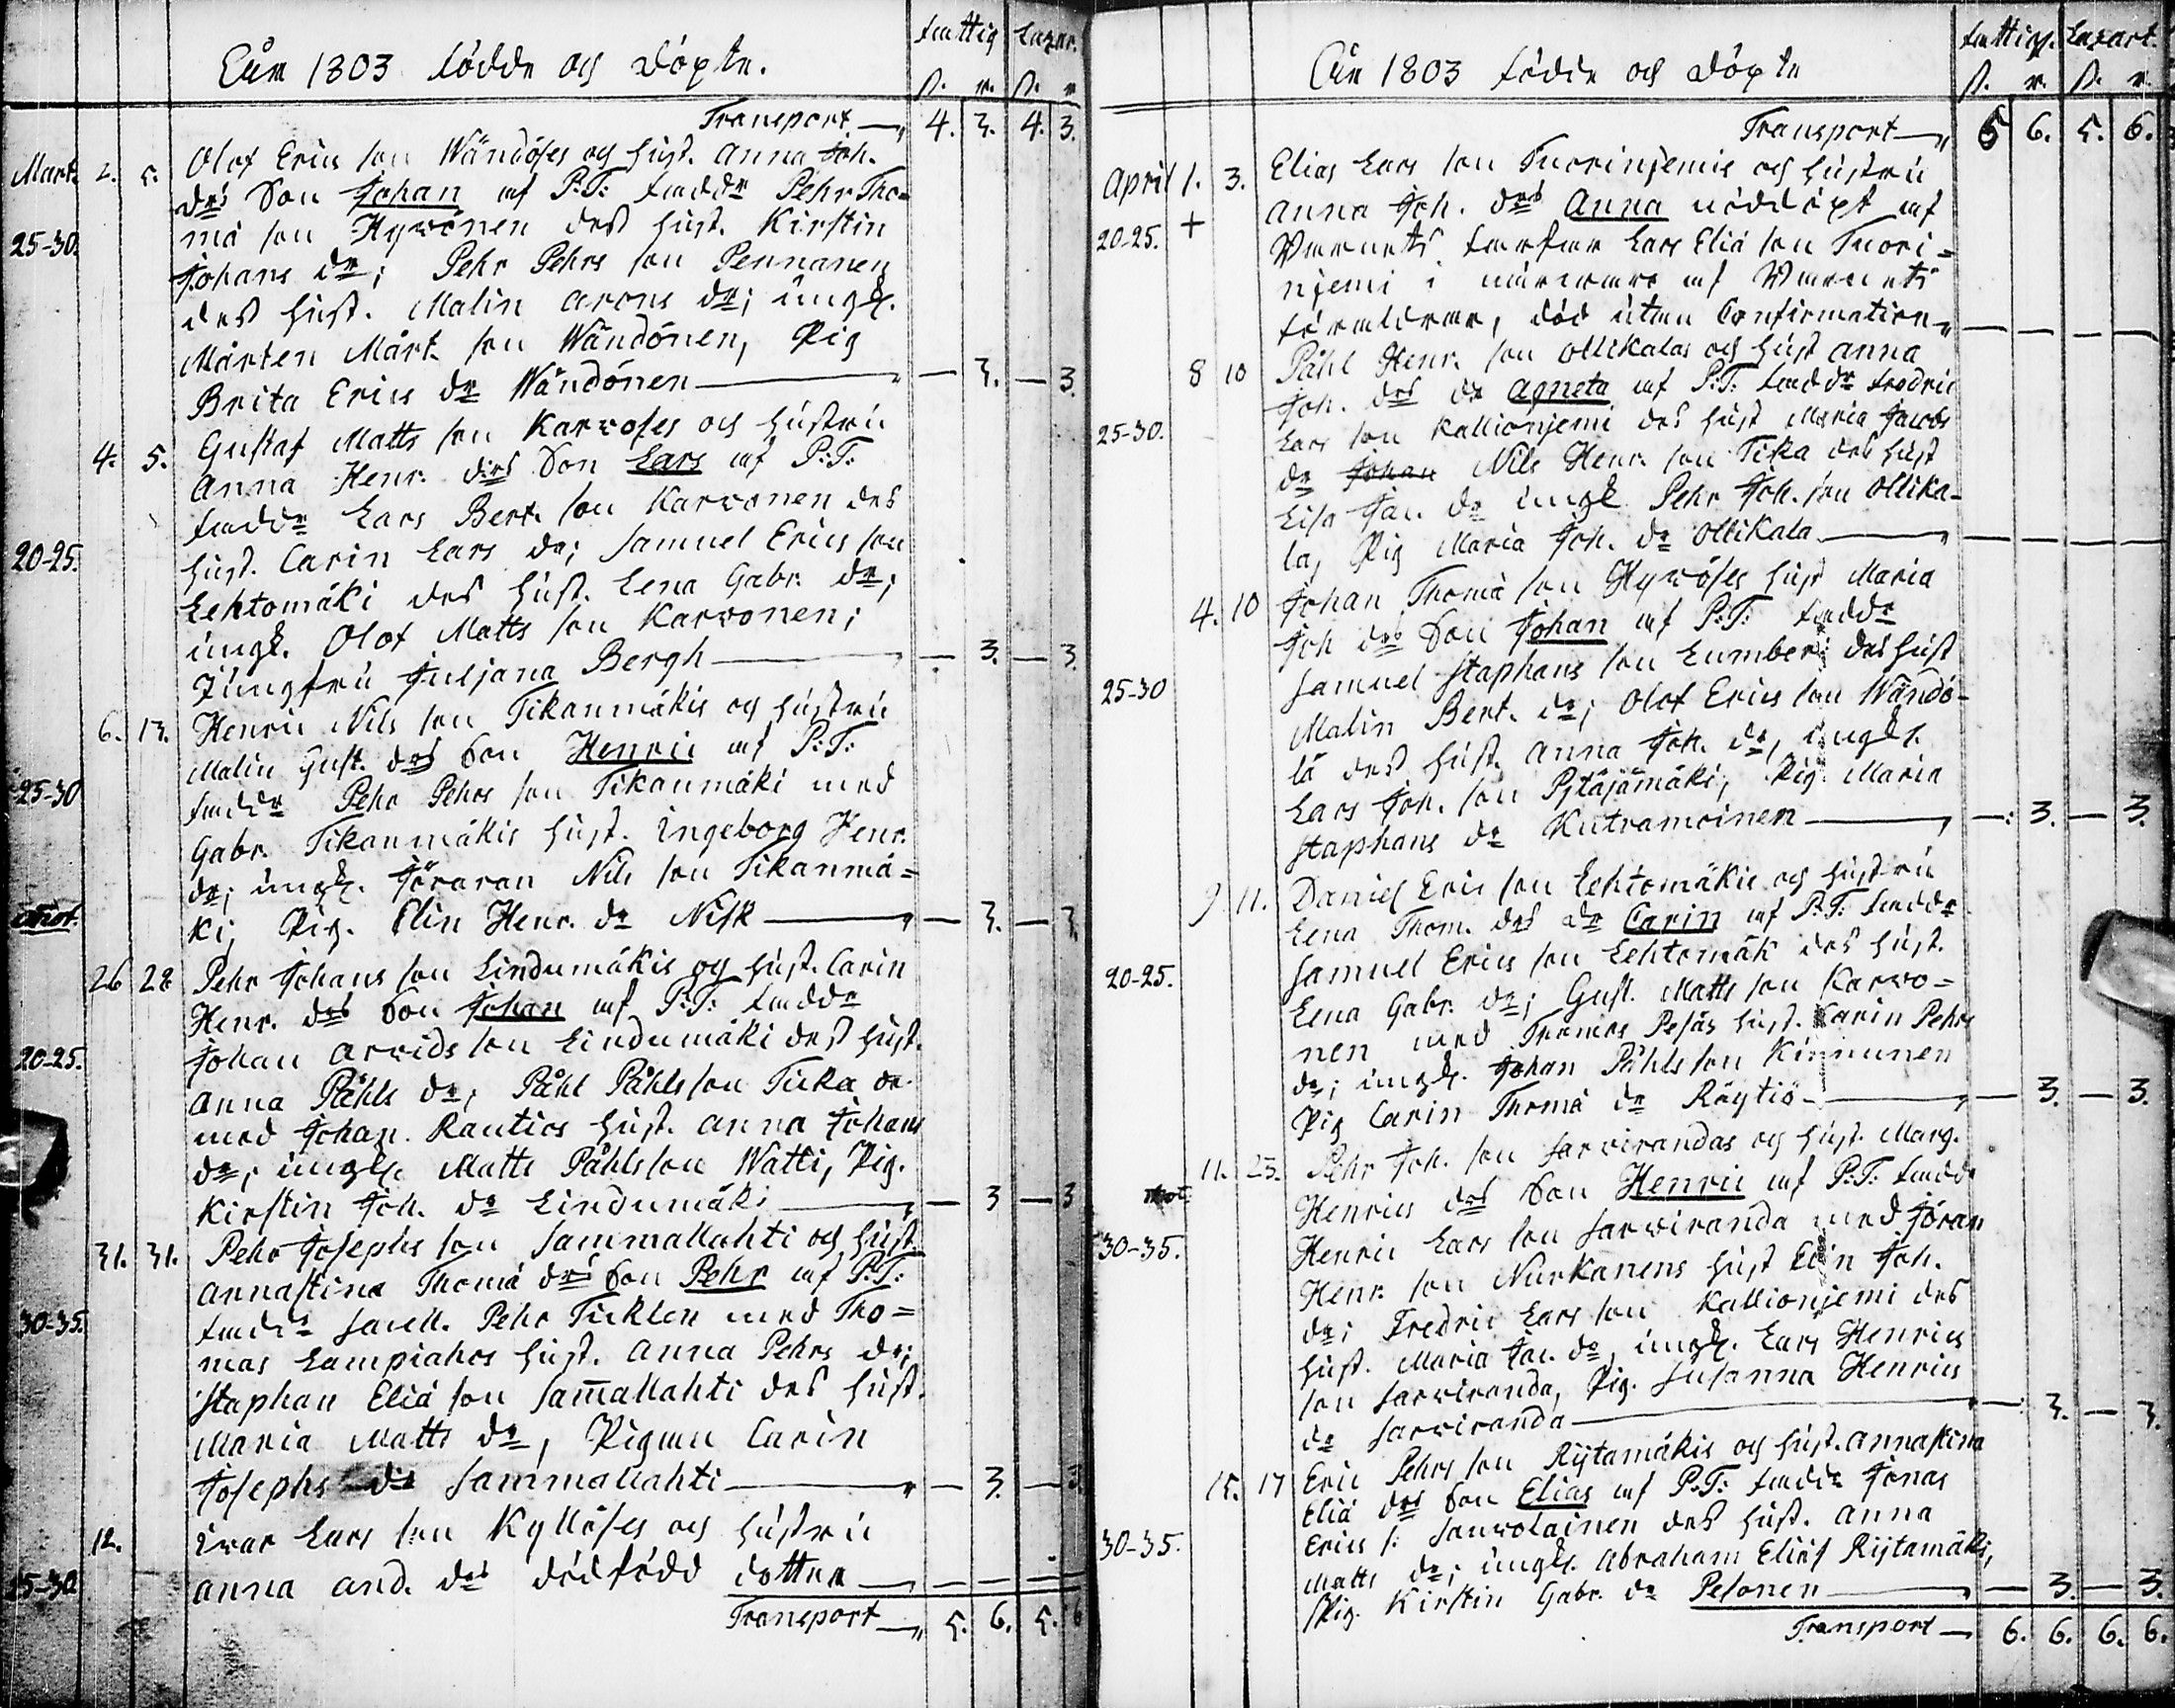 Åhr 1803 födde och döpte.
fattig Lazar.
ß. r. ß. r
Transport 4. 3. 4. 3.
Mart. 2. 5. Olof Erics son Wändöses och hust. Anna Joh.
drs Son Johan af P:T: faddr Pehr Tho=
mä son Hyvönen des hust. Kirstin
25-30.
Johans dr; Pehr Pehrs son Pennanen
des hust. Malin Arons dr; üngk.
Mårten Mårt. son Wändönen, Pig
Brita Erics dr Wändönen — 3. — 3.
4. 5. Gustaf Matts son Karvoses och hustru
Anna Henr. drs Son Lars af P:T:
faddr Lars Bert. son Karvonen des
hust. Carin Lars dr; Samuel Erics son
20-25.
Lehtomäki des hust. Lena Gabr. dr;
üngk. Olof Matts son Karvonen;
Jungfru Juljana Bergh — 3. — 3.
6. 13. Henric Nils son Tikanmäkis och hustru
Malin Gust. drs Son Henric af P:T:
faddr Pehr Pehrs son Tikanmäki med
25-30
Gabr. Tikanmäkis hust. Ingeborg Henr.
dr; üngk. Jöraran Nils son Tikanmä=
ki, Pig. Elin Henr. dr Nisk — 3. — 3.
26 28 Pehr Johans son Lindumäkis og hust. Carin
Henr. drs Son Johan af P:T: faddr
Johan Arvids son Lindumäki des hust.
20-25.
Anna Påhls dr, Påhl Påhls son Ticka
med Johan Rautios hust. Anna Johans
dr; üngk. Matts Påhls son Watti, Pig.
Kirstin Joh. dr Lindumäki — 3 — 3
31. 31. Pehr Josephs son Sammallahti och hust.
Annastina Thomä drs Son Pehr af P:T:
faddr Pehr Ticklen med Tho=
30-35.
mas Lampiahos hust. Anna Pehrs dr;
Staphan Eliä son Sam̄allahti des hust.
Maria Matts dr, Pigan Carin
Josephs dr Sammallahti — 3. — 3.
12. Ivar Lars son Kyllöses och hustru
Anna And. drs dödfödd dotter — — — —
25-30
Transport 5. 6. 5. 6
Åhr 1803 födde och döpte
fattigs. Lazart.
ß. r. ß. r.
Transport 5 6. 5. 6.
April 1. 3. Elias Lars son Tuorinjemis och hustru
Anna Joh. drs Anna nöddöpt af
20-25. +
Barnets farfar Lars Eliä son Tuori=
njemi i närvaro af Barnets
föräldrar, död utan Confirmation — — — —
8 10 Påhl Henr. son Ollikalas och hust Anna
Joh. drs dr Agneta af P:T: faddr Fredric
25-30.
Lars son Kallionjemi des hust Maria Jacobs
dr Johan Nils Henr. son Tika des hust
Lisa Jac. dr üngk Pehr Joh. son Ollika-
la, Pig Maria Joh. dr Ollikala — — — —
4. 10 Johan Thomä son Hyvöses hust Maria
Joh drs Son Johan af P:T: faddr
Samuel Staphans son Lumberi des hust
25-30
Malin Bert. dr; Olof Erics son Wändö-
lä des hust. Anna Joh. dr, üngk.
Lars Joh. son Pytäjämäki, Pig. Maria
Staphans dr Kutramoinen —: 3. — 3.
9 11. Daniel Eric son Lehtomäkis og hustru
Lena Thom. drs dr Carin af P:T: faddr
Samuel Erics son Lehtomäk des hust.
20-25.
Lena Gabr. dr; Gust. Matts son Karvo=
nen med Thomas Pesäs hust. Carin Pehrs
dr; üngk. Johan Påhls son Kinnunen
Pig Carin Thomä dr Röytiö — 3. — 3.
11. 23. Pehr Joh. son Sarvirandas og hust. Marg.
Henrics drs Son Henric af P:T: faddr
Henric Lars son Sarviranda med Jöran
30-35.
Henr. son Nurkanens hust Elin Joh.
dr; Fredric Lars son Kallionjemi des
hust. Maria Jac. dr, üngk. Lars Henrics
son Sarviranda, Pig. Susanna Henrics
dr Sarviranda —: 3. — 3.
15. 17 Eric Pehrs son Rytamäkis och hust. Annastina
Eliä drs Son Elias af P:T: faddr Jonas
Erics s: Sauvolainen des hust. Anna
30-35.
Matts dr; üngk. Abraham Eliä Rytamäki,
Pig. Kirstin Gabr. dr Pesonen — 3. — 3.
Transport 6. 6. 6. 6.